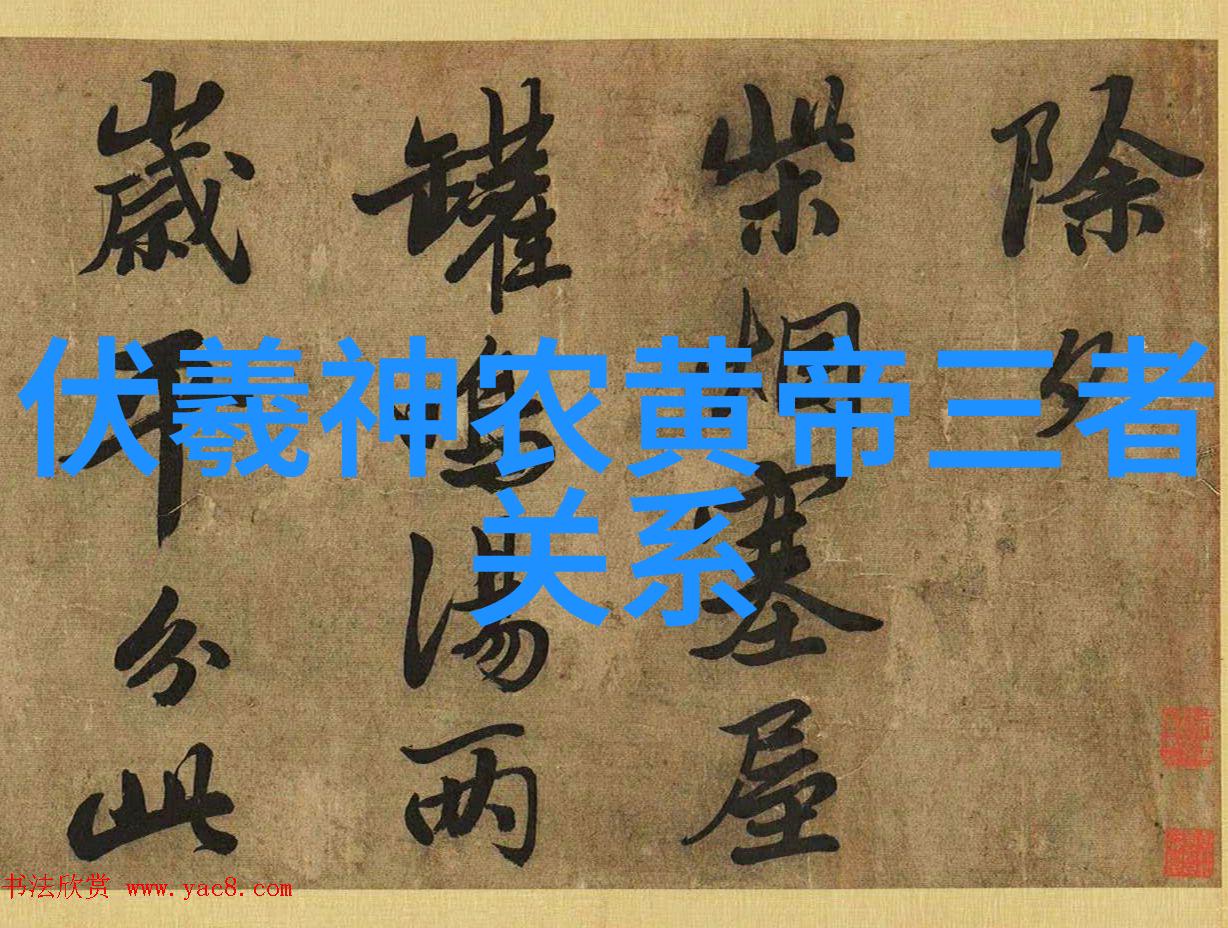 伏羲神农黄帝三者
关系
除夕
柴烟塞屋
罐鳴湯两
歲平分此
书法欣赏 www.yac8.com